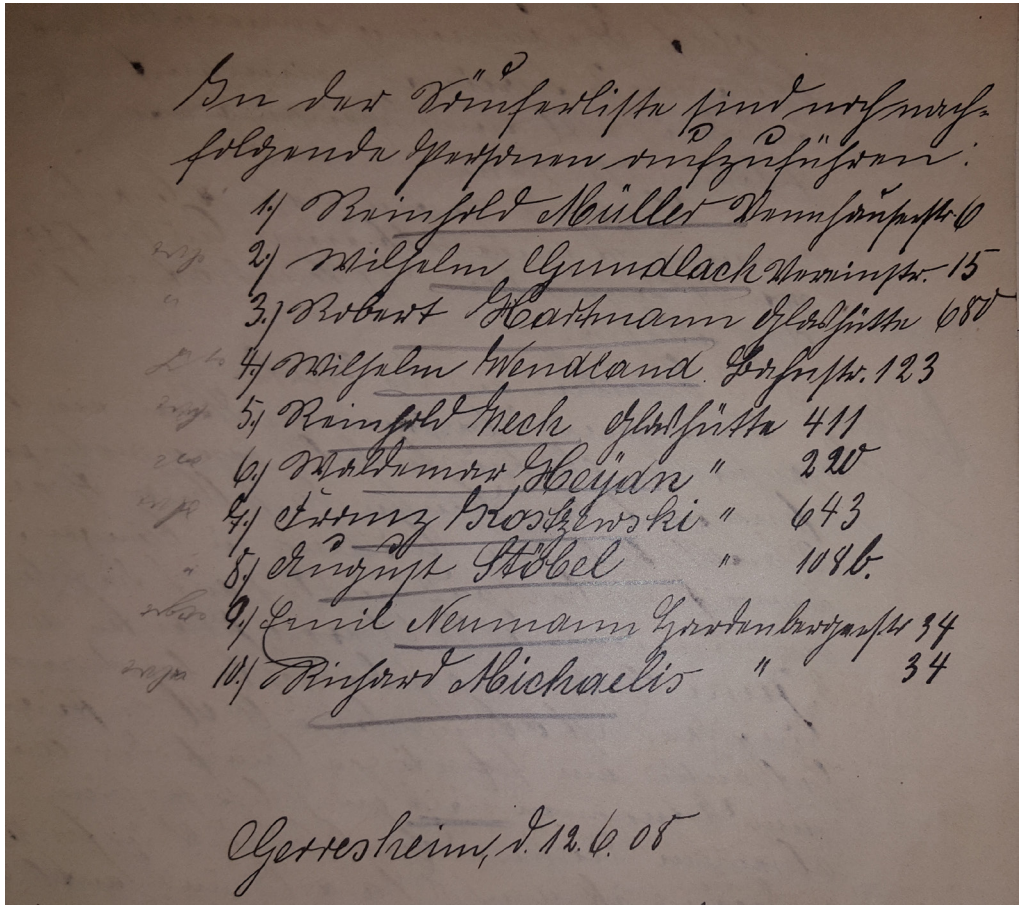 In der Säuferliste sind noch nach-
folgende Personen aufzuführen:
1.) Reinhold Müller Vennhauserstr. 6
2.) Wilhelm Gundlach Vereinstr. 15
3.) Robert Hartmann Glashütte 680
4.) Wilhelm Wendland. Bahnstr. 123
5.) Reinhold Zech Glashütte 411
6.) Waldemar Heydn " 220
7.) Franz Koslzewski " 643
8.) August Stöbel " 108b.
9.) Emil Neumann Hardenbergerstr 34
10.) Richard Michaelis " 34
Gerresheim, d. 12.6.08